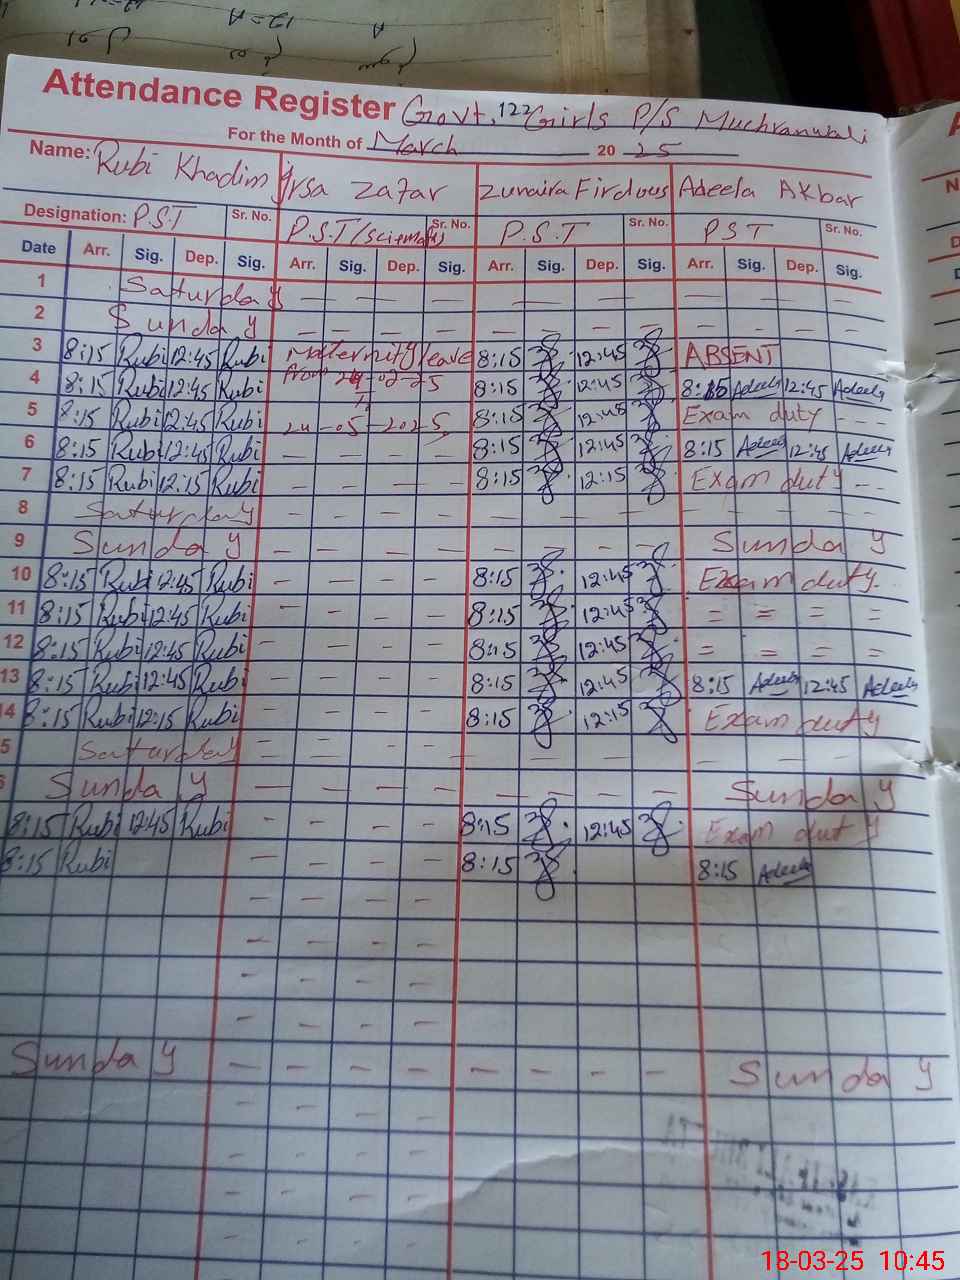 Attendance Register Govt. 122 Girls P/S Muchranwali
For the Month of March 20 25
Name: Rubi Khadim Irsa Zafar Zunaira Firdous Adeela Akbar
Designation: P.S.T Sr. No. P.S.T/ Sr. No. P.S.T Sr. No. PST Sr. No.
Date Arr. Sig. Dep. Sig. Arr. Sig. Dep. Sig. Arr. Sig. Dep. Sig. Arr. Sig. Dep. Sig.
1 Saturday — — — — — — — — — — — —
2 Sunday — — — — — — — — — — — —
3 8:15 Rubi 12:45 Rubi Maternity leave 8:15 12:45 ABSENT
4 8:15 Rubi 12:45 Rubi from 24-02-25 8:15 12:45 8:15 Adeela 12:45 Adeela
To
5 8:15 Rubi 12:45 Rubi 24-05-2025 8:15 12:45 Exam duty - - -
6 8:15 Rubi 12:45 Rubi — — — — 8:15 12:45 8:15 Adeela 12:45 Adeela
7 8:15 Rubi 12:15 Rubi — — — — 8:15 12:15 Exam duty - -
8 Saturday — — — — — — — — — — — —
9 Sunday — — — — — — — — Sunday
10 8:15 Rubi 12:45 Rubi — — — — 8:15 12:45 Exam duty
11 8:15 Rubi 12:45 Rubi — — — — 8:15 12:45 = = = =
12 8:15 Rubi 12:45 Rubi — — — — 8:15 12:45 = = = =
13 8:15 Rubi 12:45 Rubi — — — — 8:15 12:45 8:15 Adeela 12:45 Adeela
14 8:15 Rubi 12:15 Rubi — — — — 8:15 12:15 Exam duty
5 Saturday — — — — — — — — — — — —
6 Sunday — — — — — — — — Sunday
8:15 Rubi 12:45 Rubi - - - - 8:15 12:45 Exam duty
8:15 Rubi — — — — 8:15 8:15 Adeela
— — — —
— — — —
— — — —
— — — —
Sunday — — — — — — — — Sunday
- - - -
- - - -
- - - -
- - - -
- - - -
18-03-25 10:45